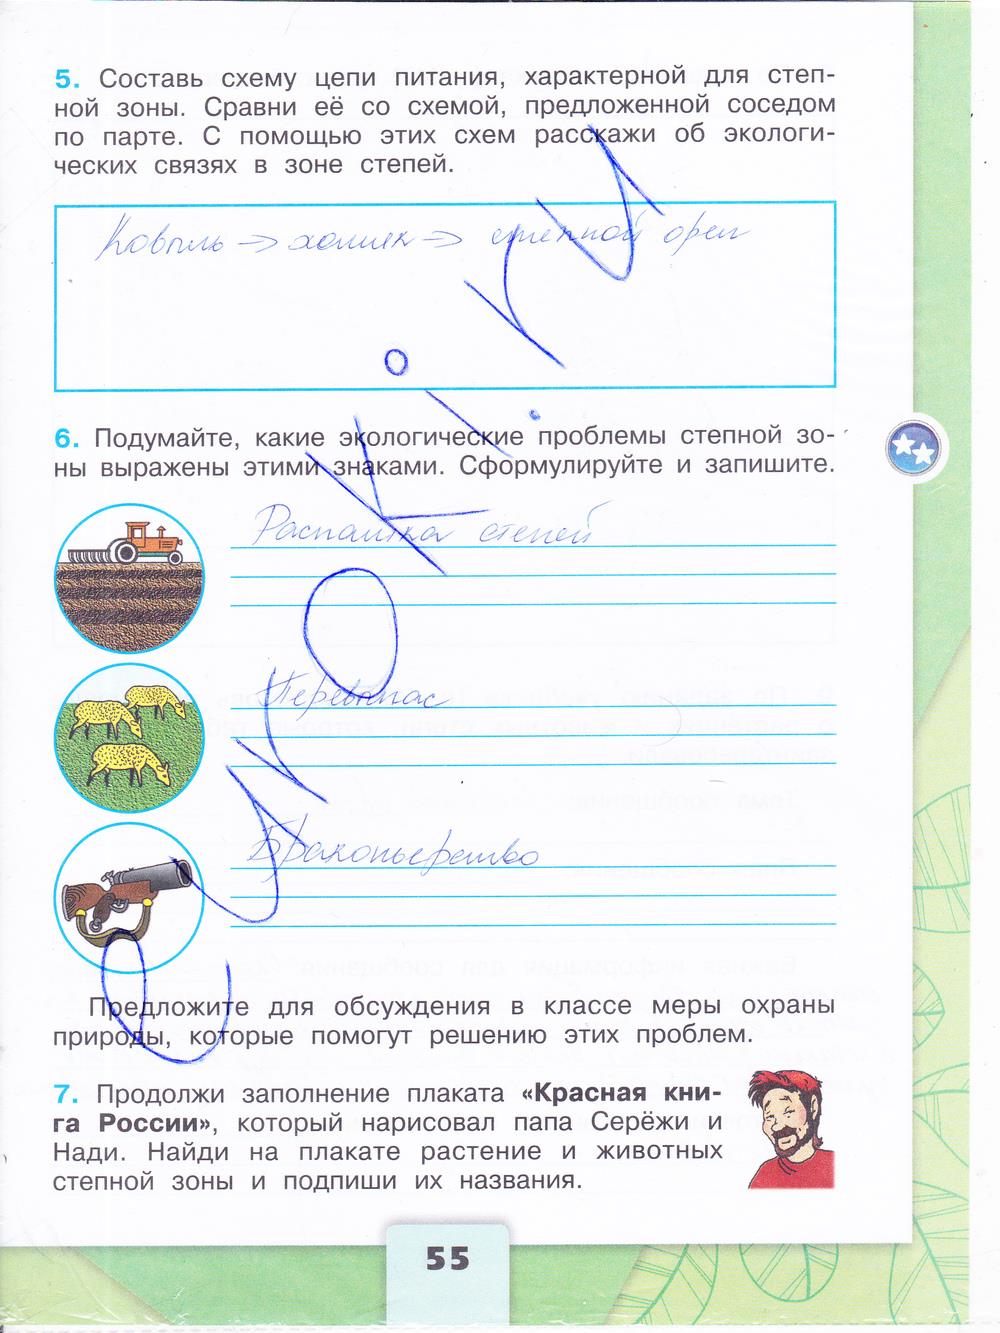 5. Составь схему цепи питания, характерной для степ-
ной зоны. Сравни её со схемой, предложенной соседом
по парте. С помощью этих схем расскажи об экологи-
ческих связях в зоне степей.
Ковыль -> хомяк -> степной орел
6. Подумайте, какие экологические проблемы степной зо-
ны выражены этими знаками. Сформулируйте и запишите.
Распашка степей
Перевыпас
Браконьерство
Предложите для обсуждения в классе меры охраны
природы, которые помогут решению этих проблем.
7. Продолжи заполнение плаката «Красная кни-
га России», который нарисовал папа Серёжи и
Нади. Найди на плакате растение и животных
степной зоны и подпиши их названия.
55